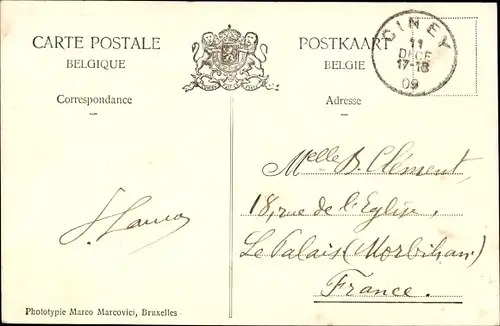 CARTE POSTALE
BELGIQUE
POSTKAART
BELGIE
CINEY
11
DECE
17-18
09
Correspondance
Adresse
Melle B. Clément,
18, rue de l'Eglise,
Le Palais (Morbihan)
France.
Phototypie Marco Marcovici, Bruxelles